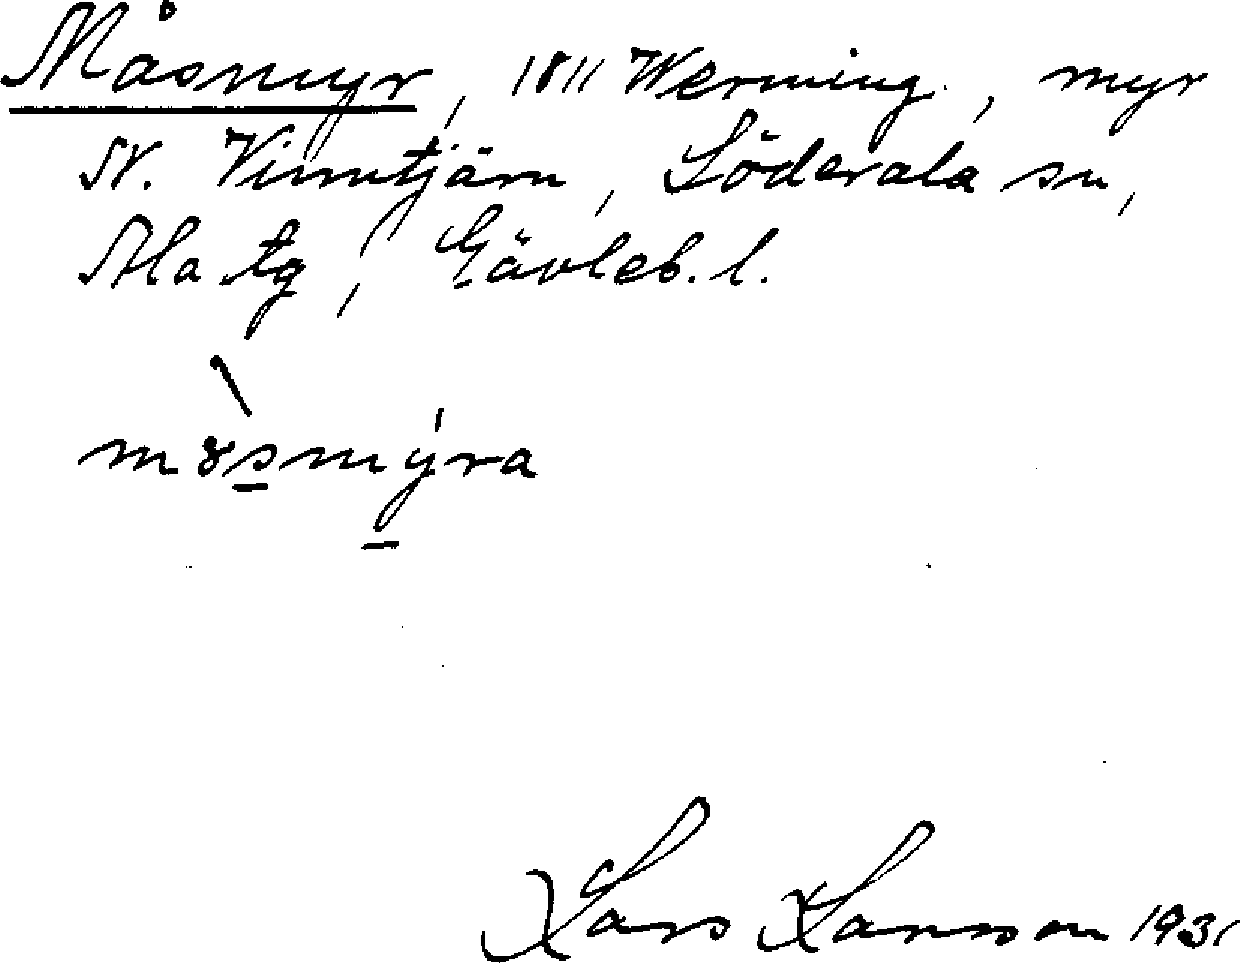 Måsmyr, 1811 Werming., myr
N. Vinntjärn, Söderala sn,
Ala tg, Gävleb. l.
mɤsmýra
Lars Larsson 1931